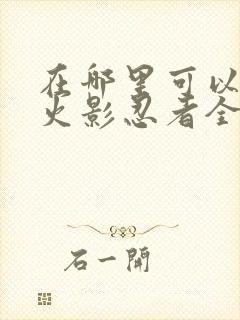 在哪里可以
火影忍者全
石一開